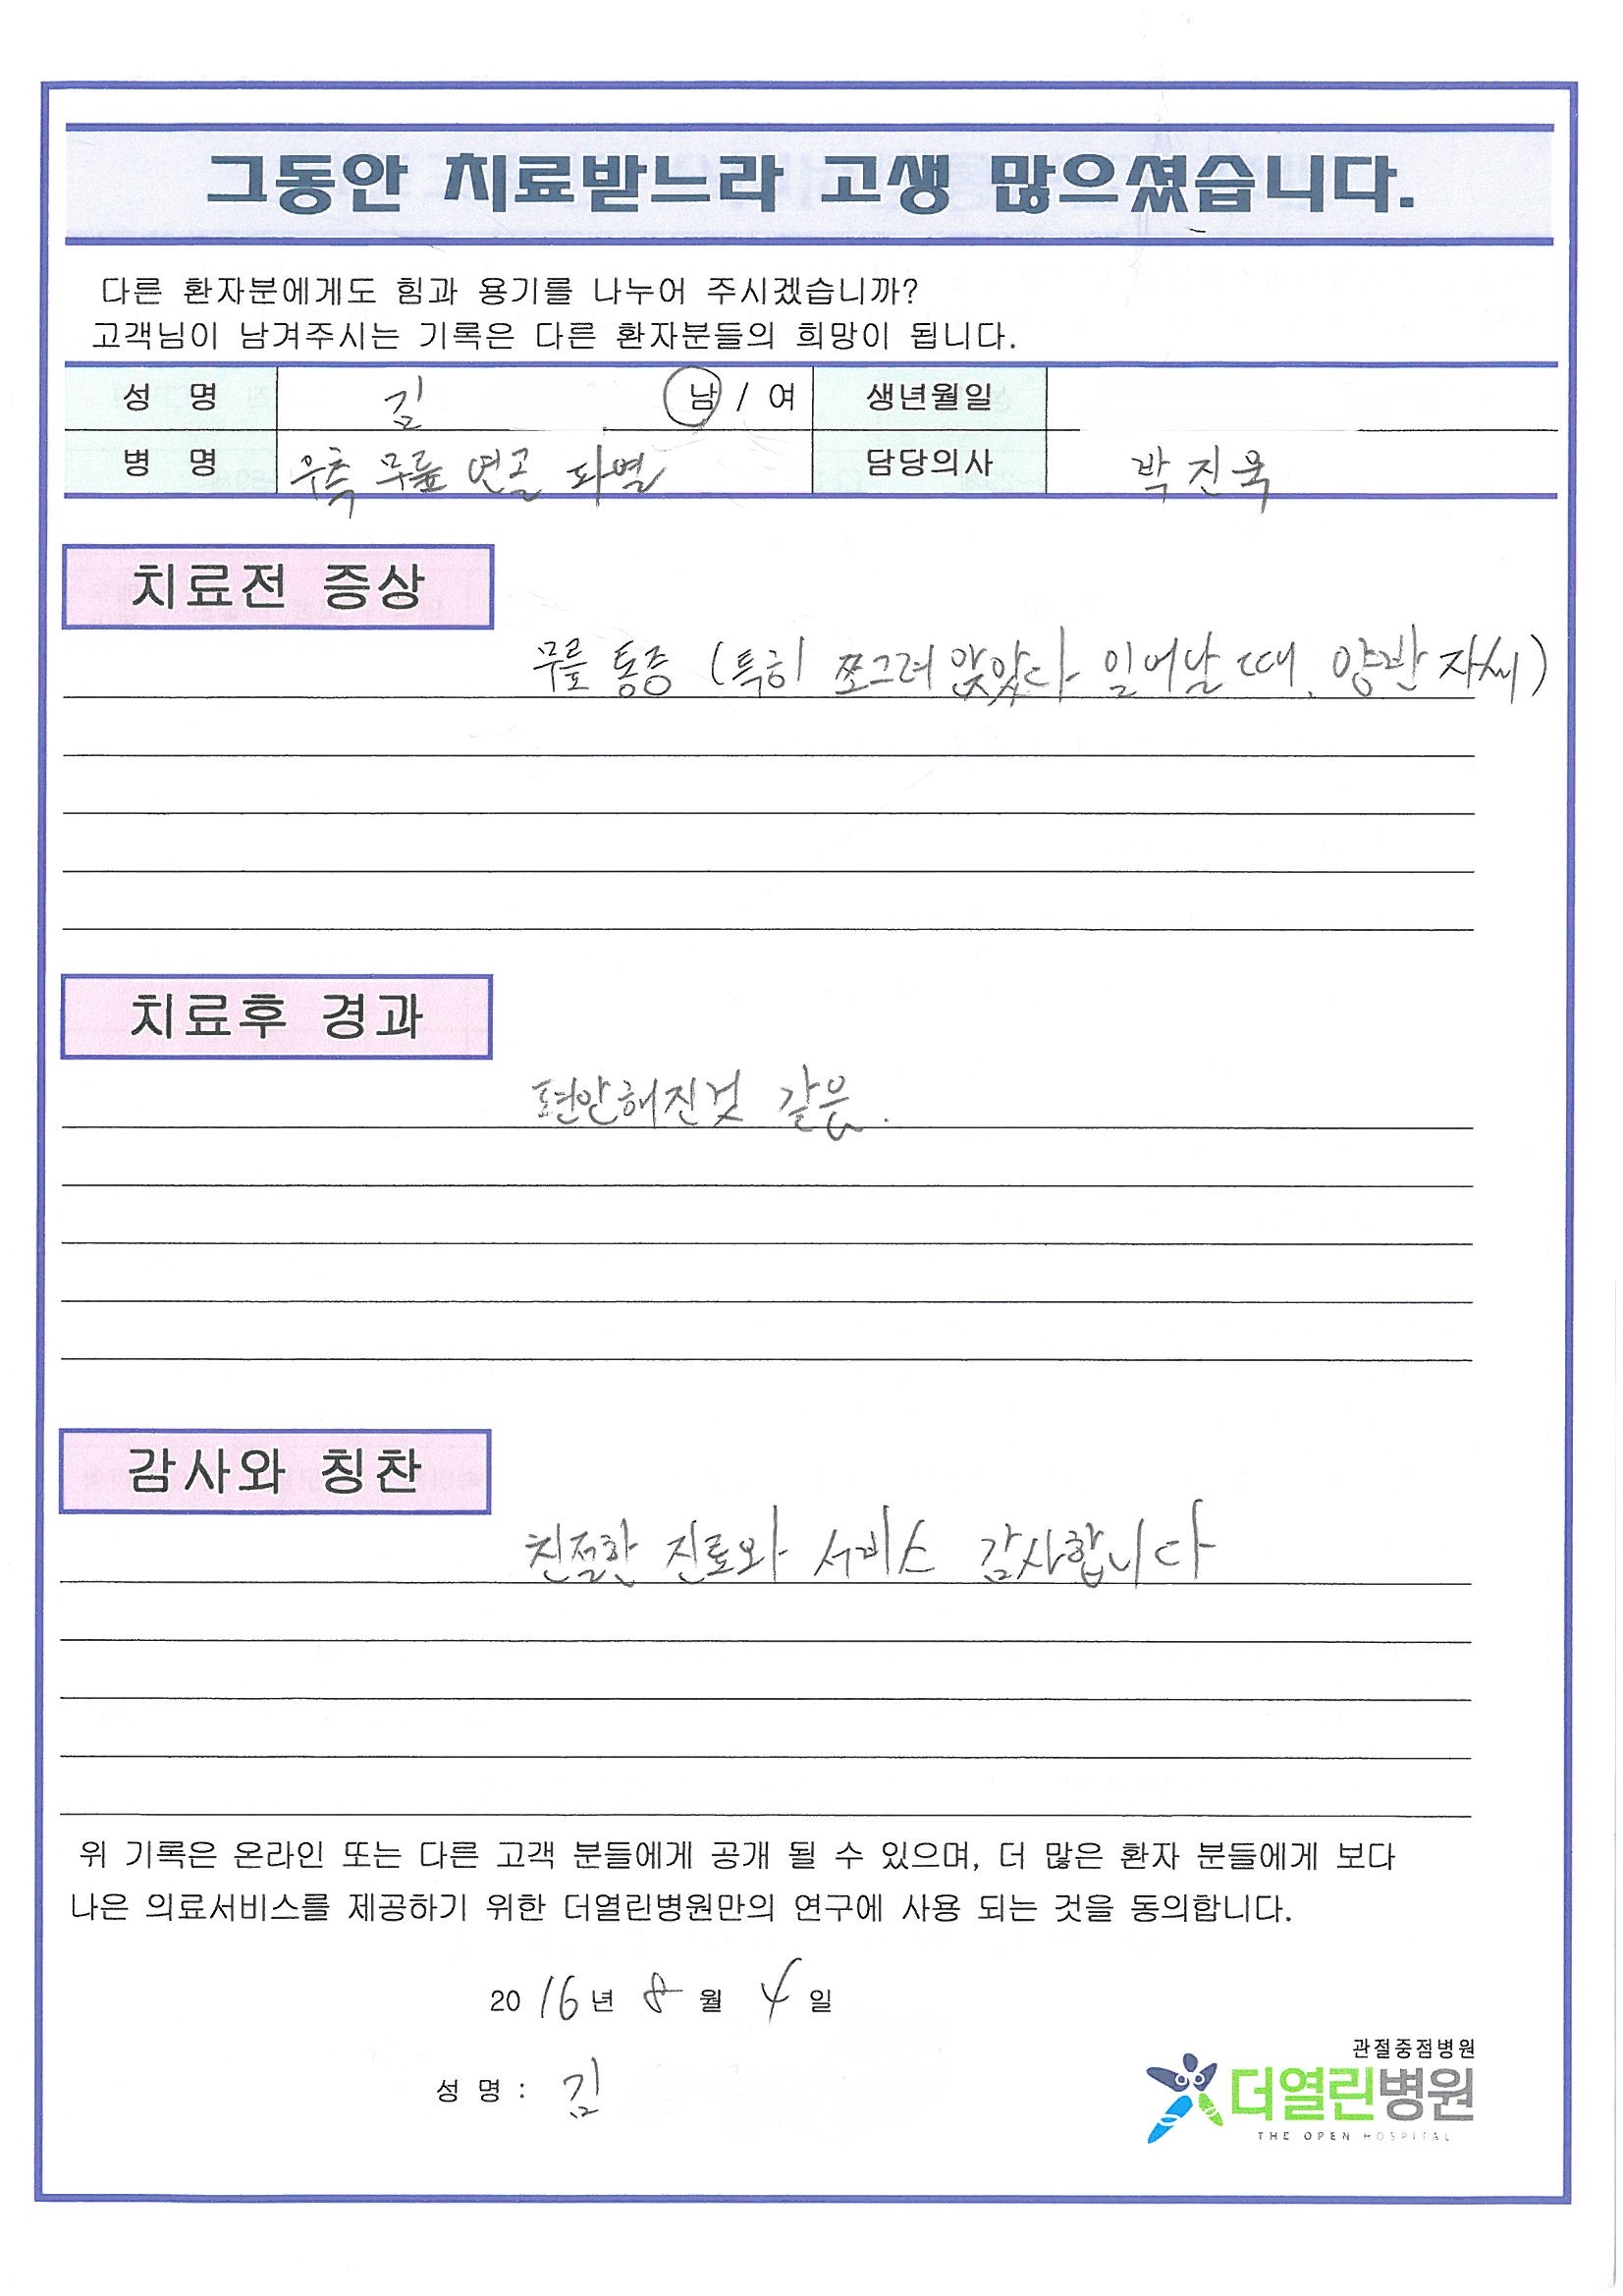 그동안 치료받느라 고생 많으셨습니다.
다른 환자분에게도 힘과 용기를 나누어 주시겠습니까?
고객님이 남겨주시는 기록은 다른 환자분들의 희망이 됩니다.
성 명 김 남 / 여 생년월일
병 명 우측 무릎 연골 파열 담당의사 박진욱
치료전 증상
무릎 통증 (특히 쪼그려 앉았다 일어날 때, 양반 자세)
치료후 경과
편안해진것 같음.
감사와 칭찬
친절한 진료와 서비스 감사합니다
위 기록은 온라인 또는 다른 고객 분들에게 공개 될 수 있으며, 더 많은 환자 분들에게 보다
나은 의료서비스를 제공하기 위한 더열린병원만의 연구에 사용 되는 것을 동의합니다.
2016년 8월 4일
성 명 : 김
관절중점병원
더열린병원
THE OPEN HOSPITAL